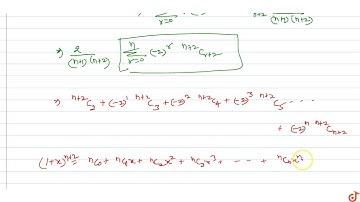 ∑ r=0 (-3) n+2 (n+1)(n+2)
⇒ 2/((n+1)(n+2)) ∑ⁿ_{r=0} (-3)^r ⁿ⁺²C_{r+2}
⇒ ⁿ⁺²C₂ + (-3)¹ ⁿ⁺²C₃ + (-3)² ⁿ⁺²C₄ + (-3)³ ⁿ⁺²C₅ ....
+ (-3)ⁿ ⁿ⁺²C_{n+2}
(1+x)ⁿ⁺² = ⁿC₀ + ⁿC₁x + ⁿC₂x² + ⁿC₃x³ + - - - - + ⁿCₙxⁿ